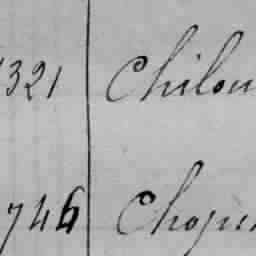 321 Chilou
746 Chopi